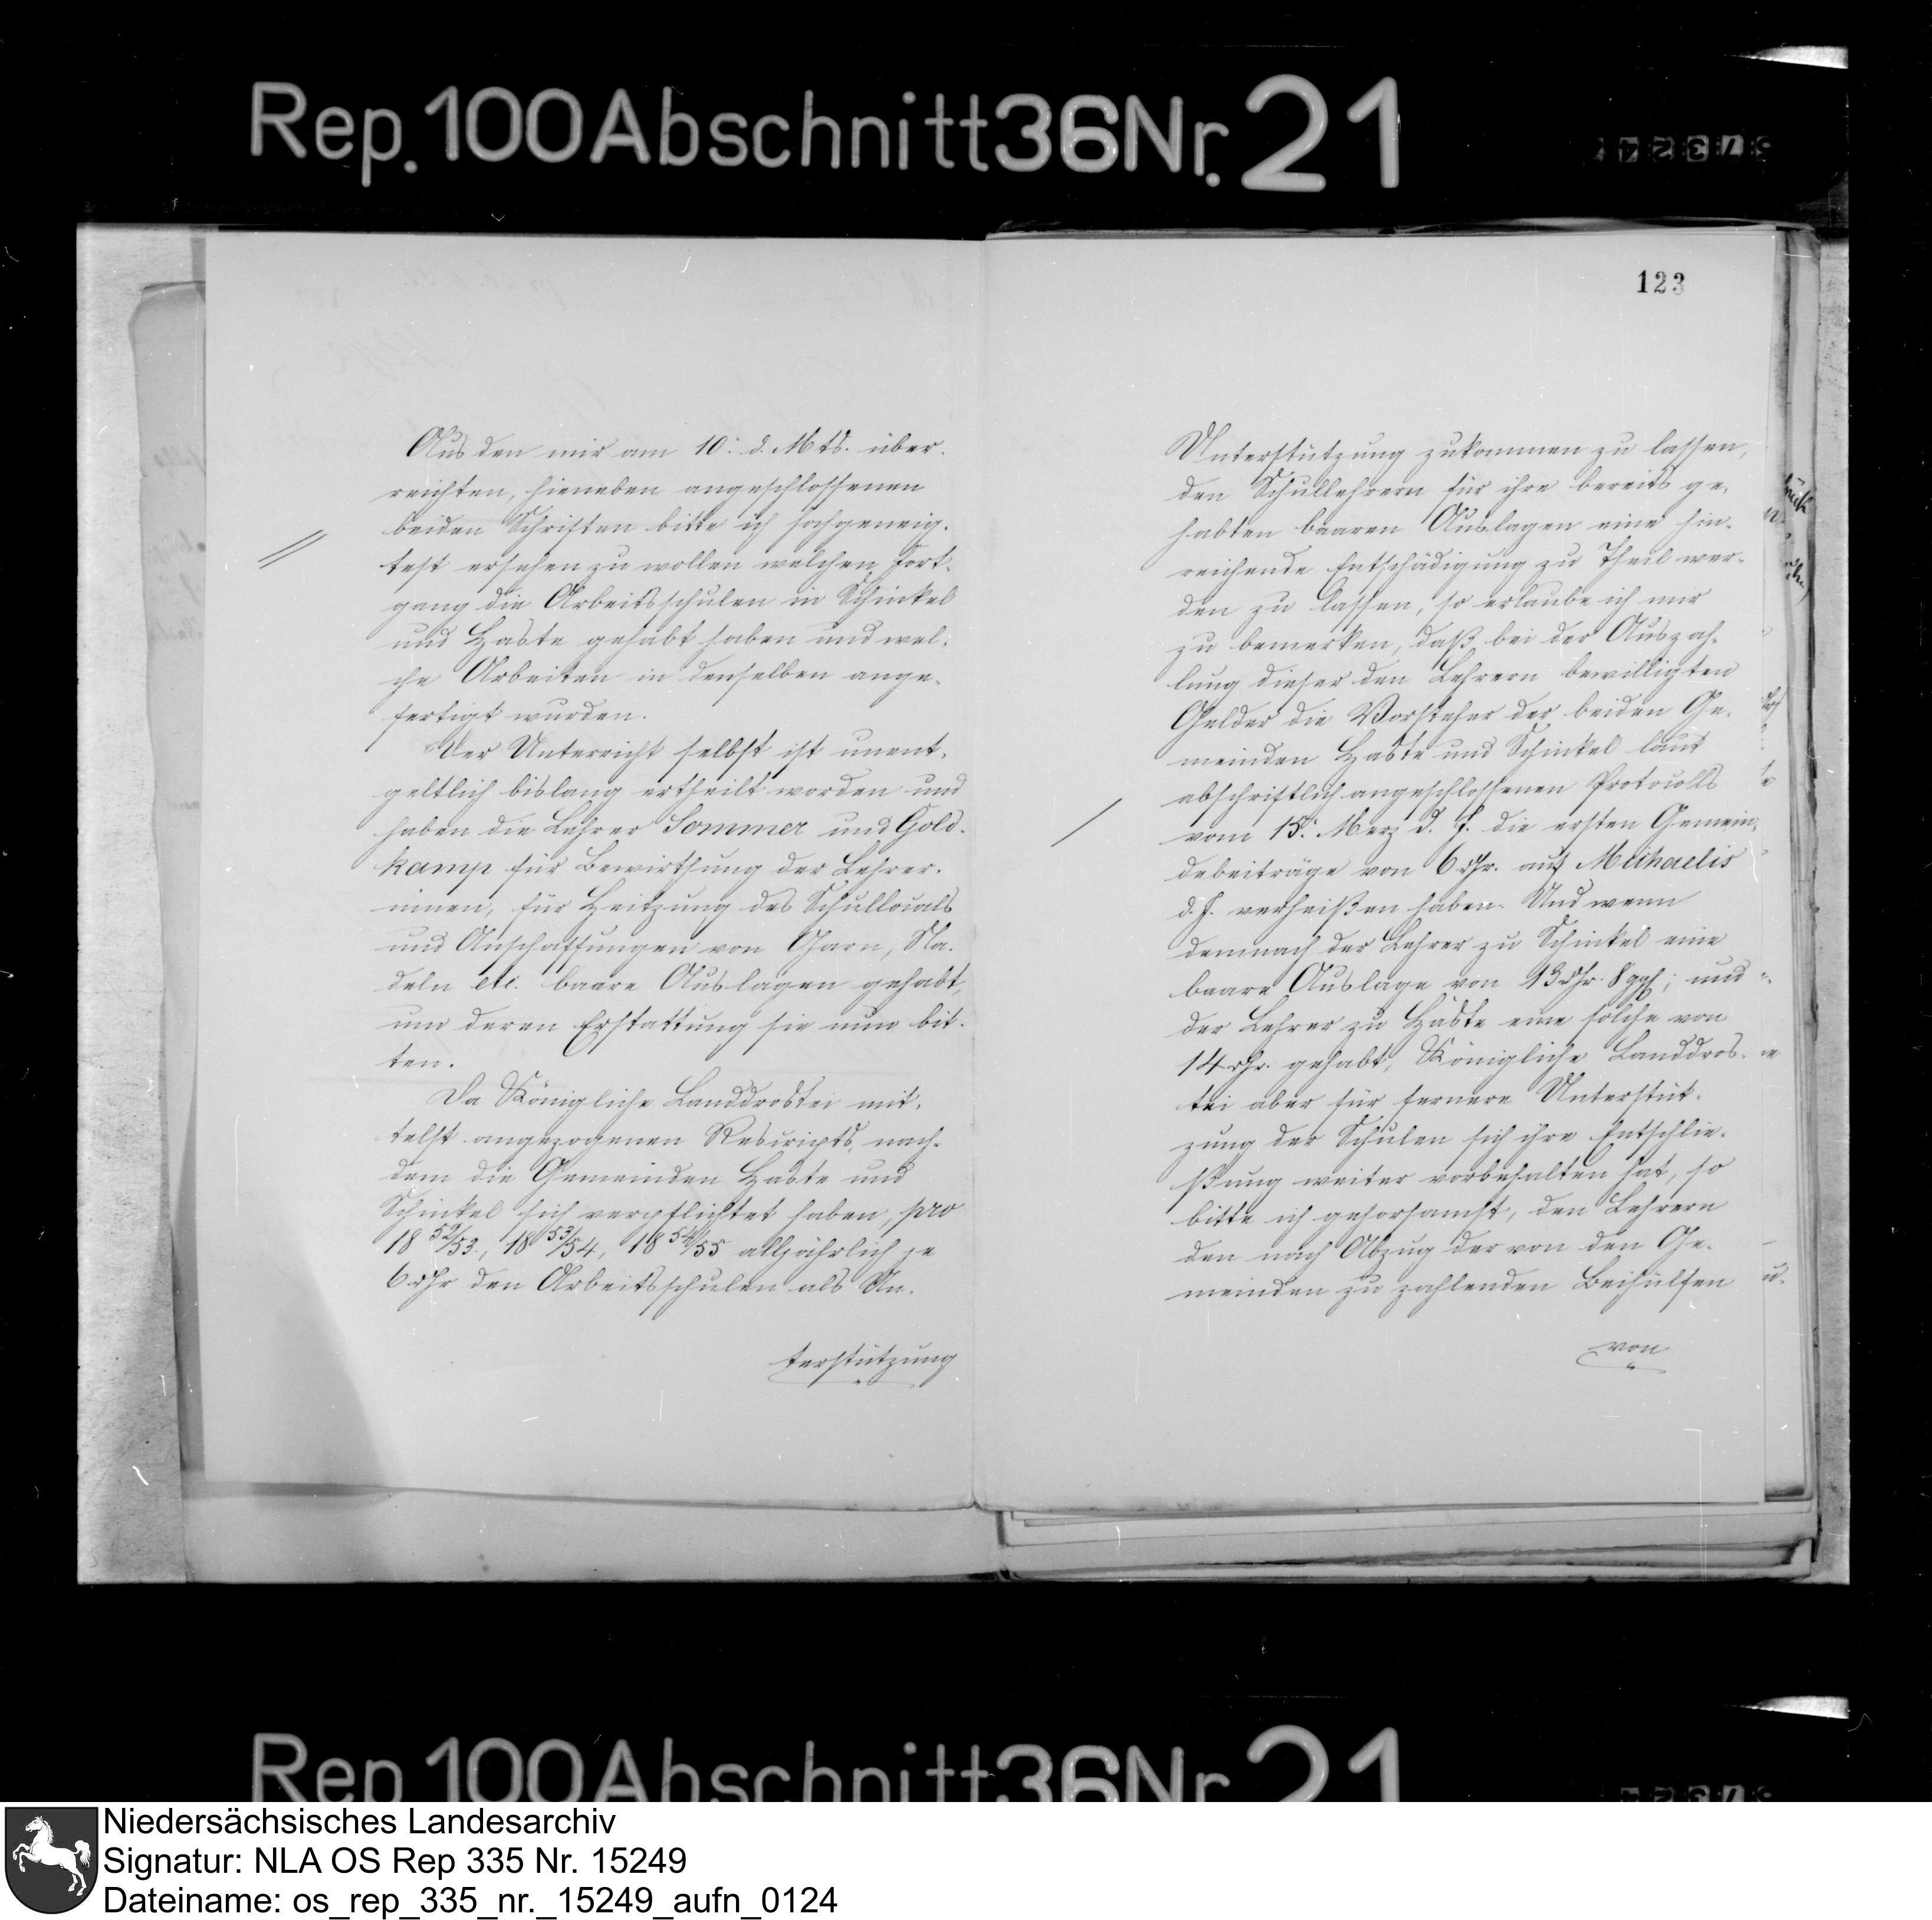 Rep. 100 Abschnitt 36 Nr. 21
Aus den mir am 10. d. Mts. über-
reichten, hieneben angeschlossenen
beiden Schriften bitte ich hochgeneig-
test ersehen zu wollen welchen Fort-
gang die Arbeitsschulen in Schinkel
und Haste gehabt haben und wel-
che Arbeiten in denselben ange-
fertigt wurden.
Der Unterricht selbst ist unent-
geltlich bislang ertheilt worden und
haben die Lehrer Sommer und Gold-
kamp für Bewirthung der Lehrer-
innen, für Heitzung des Schullocals
und Anschaffungen von Garn, Na-
deln etc. baare Auslagen gehabt,
um deren Erstattung sie nun bit-
ten.
Da Königliche Landdrostei mit-
telst angezogenen Rescripts, nach-
dem die Gemeinden Haste und
Schinkel sich verpflichtet haben, pro
18 52/53., 18 53/54, 18 54/55 alljährlich je
6 rthr den Arbeitsschulen als Un-
terstützung
123
Unterstützung zukommen zu lassen,
den Schullehrern für ihre bereits ge-
habten baaren Auslagen eine hin-
reichende Entschädigung zu Theil wer-
den zu lassen, so erlaube ich mir
zu bemerken, daß bei der Auszah-
lung dieser den Lehrern bewilligten
Gelder die Vorsteher der beiden Ge-
meinden Haste und Schinkel laut
abschriftlich angeschlossenen Protocolls
vom 15. Merz d. J. die ersten Gemein-
debeiträge von 6 rthr. auf Michaelis
d. J. verheißen haben. Und wenn
demnach der Lehrer zu Schinkel eine
baare Auslage von 13 rthr. 8 ggr; und
der Lehrer zu Haste eine solche von
14 rthr. gehabt, Königliche Landdros-
tei aber für fernere Unterstüt-
zung der Schulen sich ihre Entschlie-
ßung weiter vorbehalten hat, so
bitte ich gehorsamst, den Lehrern
den nach Abzug der von den Ge-
meinden zu zahlenden Beihülfen
von
Rep. 100 Abschnitt 36 Nr. 21
Niedersächsisches Landesarchiv
Signatur: NLA OS Rep 335 Nr. 15249
Dateiname: os_rep_335_nr._15249_aufn_0124